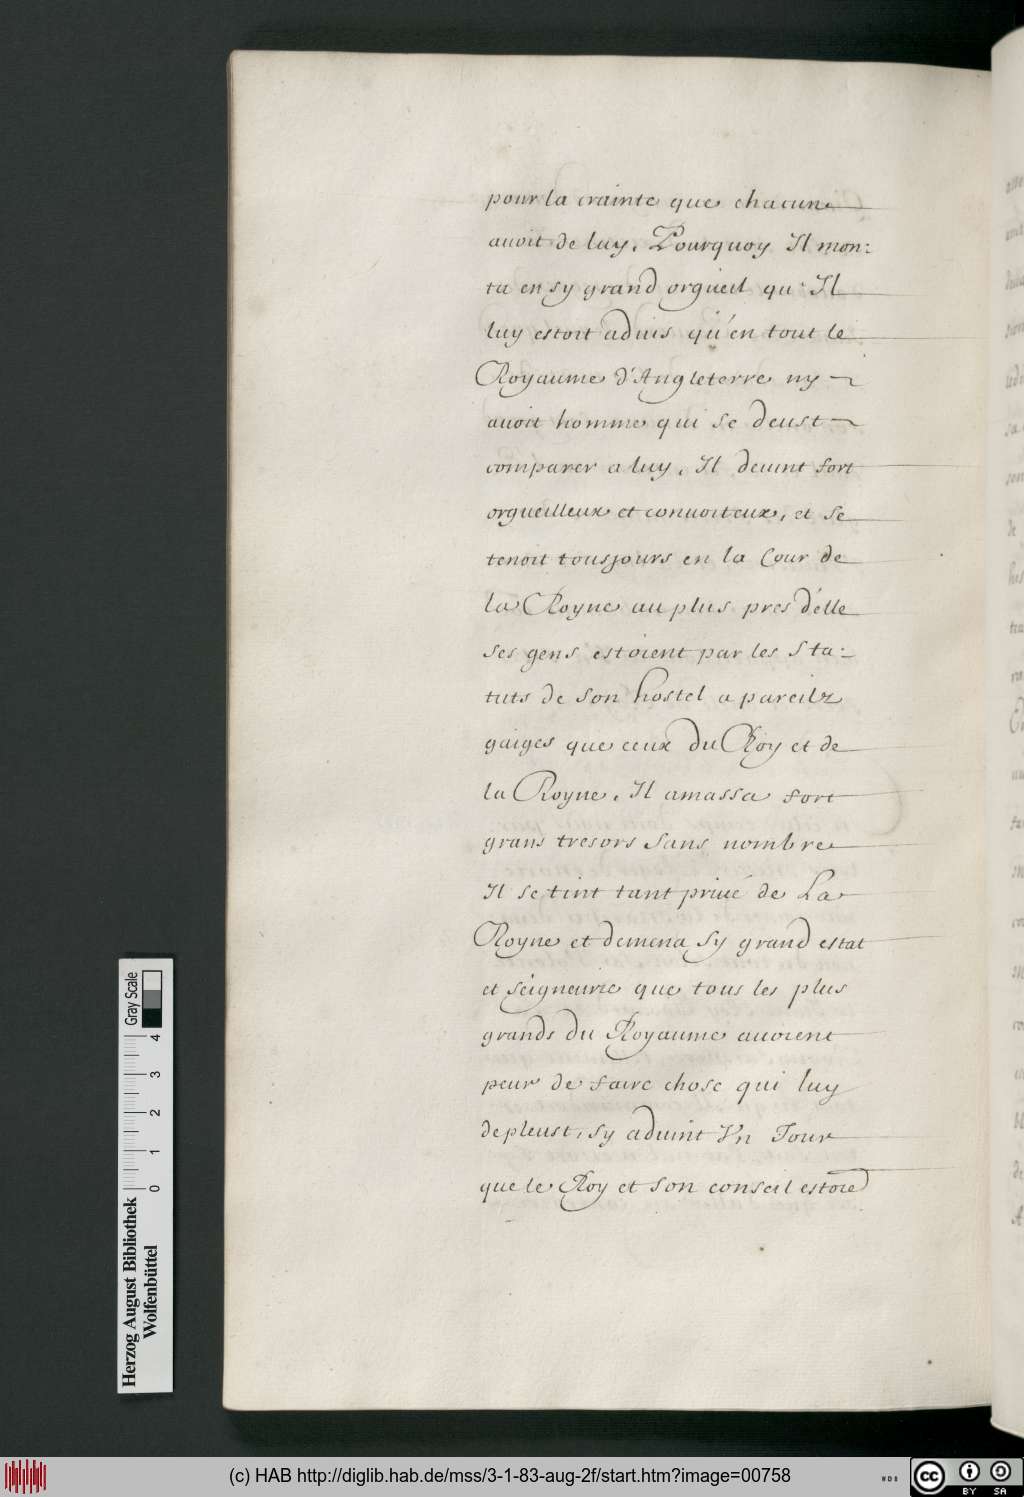 pour la crainte que chacun
auoit de luy. Pourquoy Il mon:
ta en sy grand orgueil qu'Il
luy estoit aduis qu'en tout le
Royaume d'Angleterre ny
auoit homme qui se deust
comparer a luy, Il deuint fort
orgueilleux et conuoiteux, et se
tenoit tousjours en la Cour de
la Royne au plus pres d'elle
ses gens estoient par les sta:
tuts de son hostel a pareilz
gaiges que ceux du Roy et de
la Royne. Il amassa fort
grans tresors sans nombre
Il se tint tant priué de La
Royne et demena sy grand estat
et seigneurie que tous les plus
grands du Royaume auoient
peur de faire chose qui luy
depleust, sy aduint Vn Jour
que le Roy et son conseil estoiēt
Herzog August Bibliothek
Wolfenbüttel
0 1 2 3 4
Gray Scale
(c) HAB http://diglib.hab.de/mss/3-1-83-aug-2f/start.htm?image=00758
WDB
cc
BY SA